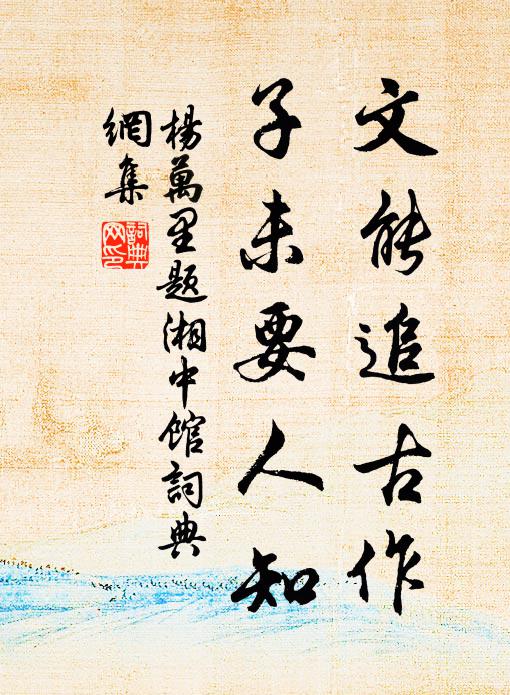 文能追古作
子未要人知
楊萬里題湘中館詞典
網集
詞典
网印